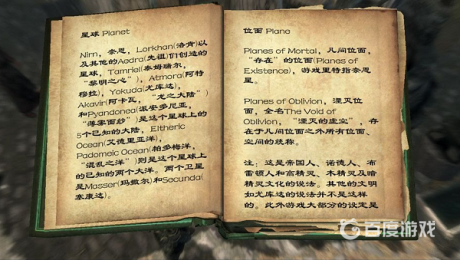 星球 Planet
Nirn，奈恩，Lorkhan(洛肯)以
及其他的Aedra(先祖)们创造的
星球，Tamriel(泰姆瑞尔，
“黎明之心”)，Atmora(阿特
穆拉)，Yokuda(尤库达)，
Akavir(阿卡瓦，“龙之大陆”
和Pyandonea(派安多尼亚，
“薄雾面纱”)是这个星球上的
5个已知的大陆，Eltheric
Ocean(艾德里亚洋)，
Padomaic Ocean(帕多梅洋，
“混乱之洋”)则是这个星球上
的已知的两个大洋。两个卫星
是Masser(玛瑟尔)和Secunda(
塞康达)。
位面 Plane
Planes of Mortal，凡间位面，
“存在”的位面(Planes of
Existence)，游戏里特指奈恩星。
Planes of Oblivion，湮灭位
面，全名The Void of
Oblivion，“湮灭的虚空”，存
在于凡间位面之外所有位面、
空间的统称。
注：这是帝国人、诺德人、布
雷顿人和高精灵、木精灵及暗
精灵文化的说法。其他的文明
如尤库达的说法并不是这样
的。此外游戏大部分的设定是
百度游戏